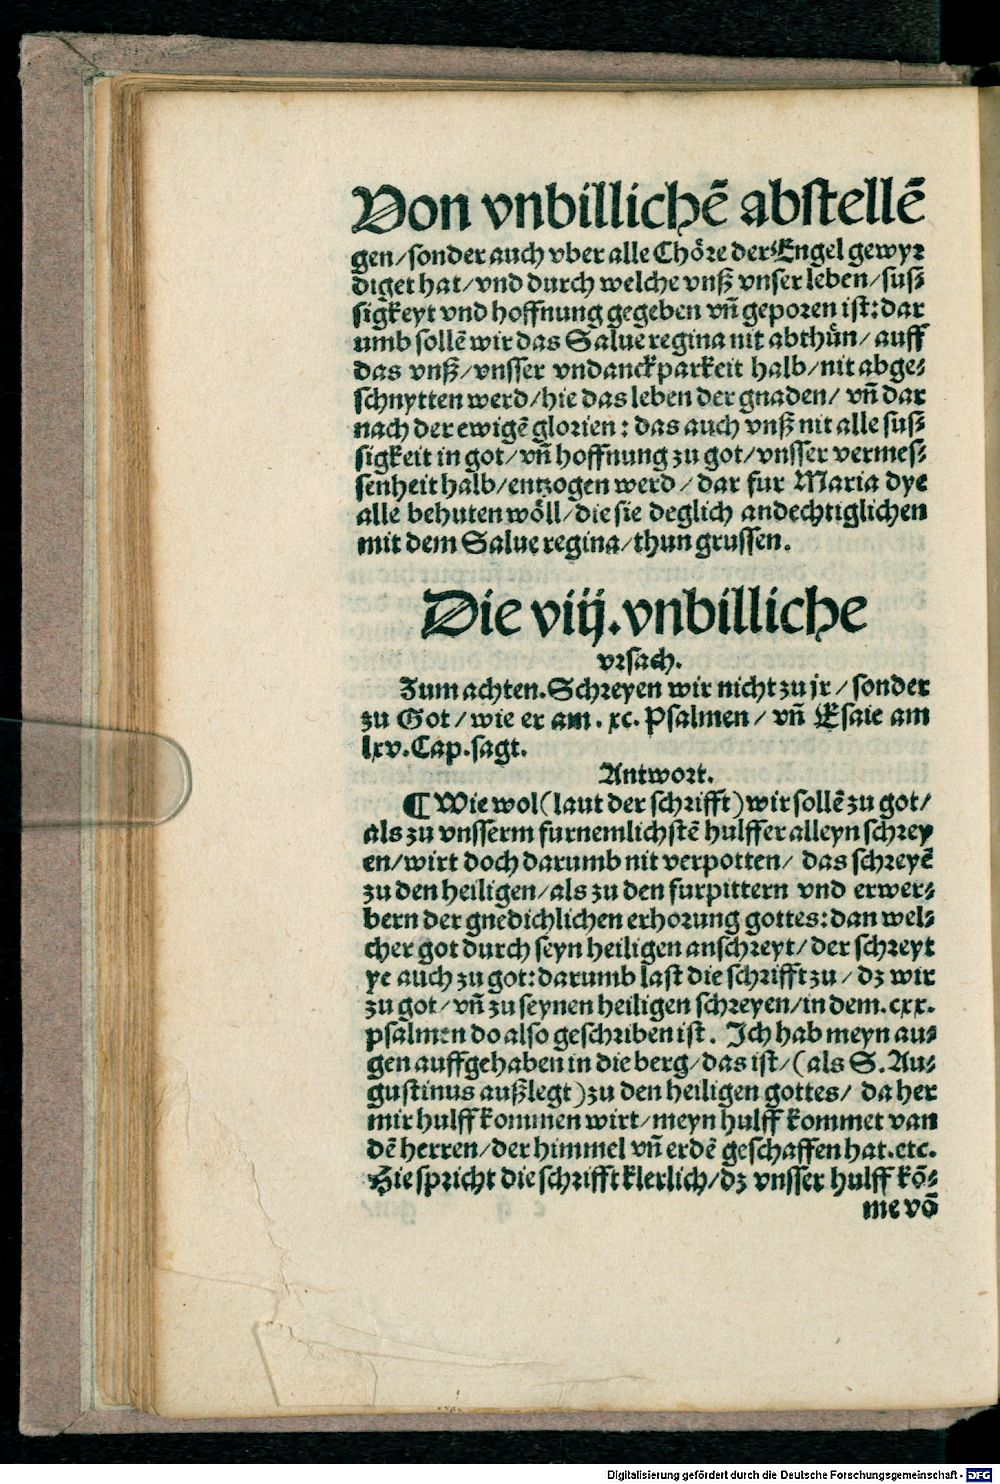 Von vnbillichē abstellē
gen/sonder auch vber alle Chöre der Engel gewyr⸗
diget hat/vnd durch welche vnß vnser leben/sus⸗
sigkeyt vnd hoffnung gegeben vñ geporen ist: dar
umb sollē wir das Salue regina nit abthůn/ auff
das vnß/vnsser vndanckparkeit halb/nit abge⸗
schnytten werd/hie das leben der gnaden/ vñ dar
nach der ewigē glorien: das auch vnß nit alle sus⸗
sigkeit in got/vñ hoffnung zu got/vnsser vermes⸗
senheit halb/entzogen werd/ dar fur Maria dye
alle behuten wöll/die sie deglich andechtiglichen
mit dem Salue regina/thun grussen.
Die viij.vnbilliche
vrsach.
Zum achten. Schreyen wir nicht zu jr/sonder
zu Got/wie er am. xc. Psalmen/vñ Esaie am
lxv. Cap. sagt.
Antwort.
¶ Wie wol (laut der schrifft) wir sollē zu got/
als zu vnsserm furnemlichstē hulffer alleyn schrey
en/wirt doch darumb nit verpotten/ das schreyē
zu den heiligen/als zu den furpittern vnd erwer⸗
bern der gnedichlichen erhorung gottes: dan wel⸗
cher got durch seyn heiligen anschreyt/der schreyt
ye auch zu got: darumb last die schrifft zu/dz wir
zu got/vñ zu seynen heiligen schreyen/in dem. cxx.
psalmen do also geschriben ist. Ich hab meyn au⸗
gen auffgehaben in die berg/das ist/(als S. Au⸗
gustinus außlegt) zu den heiligen gottes/ da her
mir hulff kommen wirt/meyn hulff kommet van
dē herren/der himmel vñ erdē geschaffen hat. etc.
Hie spricht die schrifft klerlich/dz vnsser hulff kō⸗
me vō
Digitalisierung gefördert durch die Deutsche Forschungsgemeinschaft - DFG